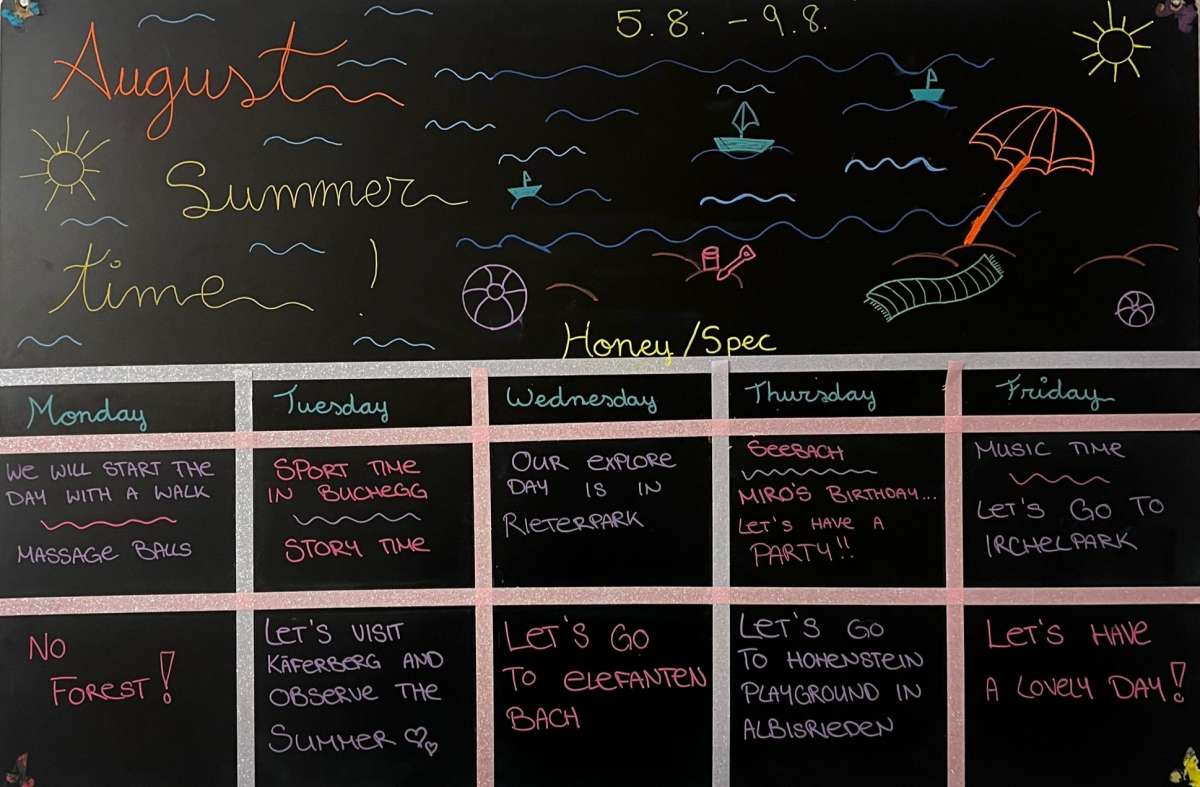 August
5.8. - 9.8.
Summer
time!
Honey/Spec
Monday
Tuesday
Wednesday
Thursday
Friday
WE WILL START THE
DAY WITH A WALK
MASSAGE BALLS
SPORT TIME
IN BUCHEGG
STORY TIME
OUR EXPLORE
DAY IS IN
RIETERPARK
SEEBACH
MIRO'S BIRTHDAY...
LET'S HAVE A
PARTY!!
MUSIC TIME
LET'S GO TO
IRCHELPARK
NO
FOREST!
LET'S VISIT
KÄFERBERG AND
OBSERVE THE
SUMMER
LET'S GO
TO ELEFANTEN
BACH
LET'S GO
TO HOHENSTEIN
PLAYGROUND IN
ALBISRIEDEN
LET'S HAVE
A LOVELY DAY!